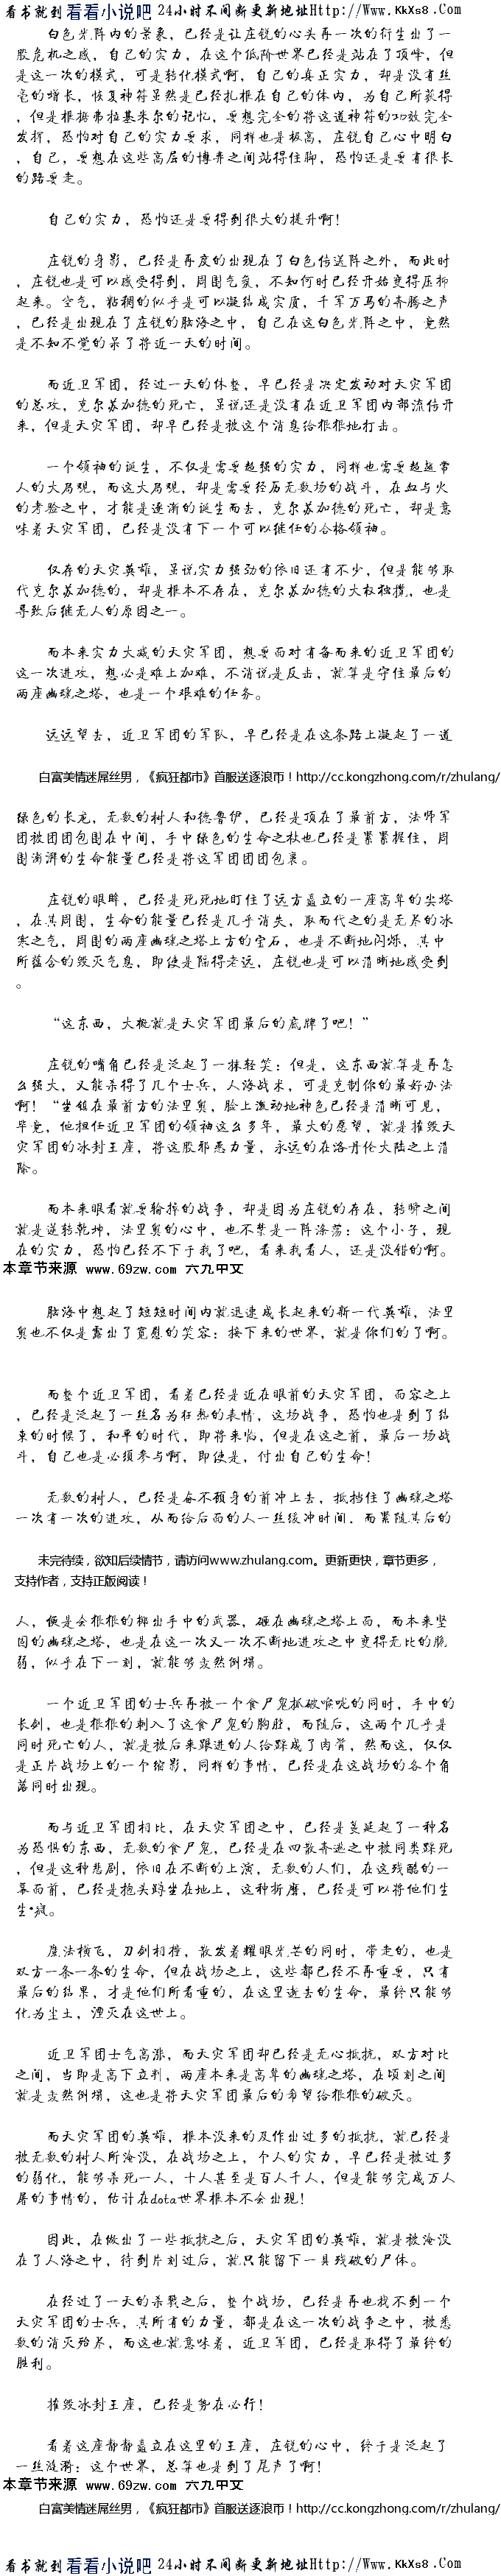 看书就到看看小说吧 24小时不间断更新地址Http://Www.KkXs8.Com
白色光阵内的景象，已经是让庄锐的心头再一次的衍生出了一
股危机之感，自己的实力，在这个低阶世界已经是站在了顶峰，但
是这一次的模式，可是转化模式啊，自己的真正实力，却是没有丝
毫的增长，恢复神符虽然是已经扎根在自己的体内，为自己所获得
，但是根据弗拉基米尔的记忆，要想完全的将这道神符的功效完全
发挥，恐怕对自己的实力要求，同样也是极高，庄锐自己心中明白
，自己，要想在这些高层的博弈之间站得住脚，恐怕还是要有很长
的路要走。
自己的实力，恐怕还是要得到很大的提升啊！
庄锐的身影，已经是再度的出现在了白色传送阵之外，而此时
，庄锐也是可以感受得到，周围气氛，不知何时已经开始变得压抑
起来。空气，粘稠的似乎是可以凝结成实质，千军万马的奔腾之声
，已经是出现在了庄锐的脑海之中，自己在这白色光阵之中，竟然
是不知不觉的呆了将近一天的时间。
而近卫军团，经过一天的休整，早已经是决定发动对天灾军团
的总攻，克尔苏加德的死亡，虽说还是没有在近卫军团内部流传开
来，但是天灾军团，却早已经是被这个消息给狠狠地打击。
一个领袖的诞生，不仅是需要超强的实力，同样也需要超越常
人的大局观，而这大局观，却是需要经历无数场的战斗，在血与火
的考验之中，才能是逐渐的诞生而去，克尔苏加德的死亡，却是意
味着天灾军团，已经是没有下一个可以继任的合格领袖。
仅存的天灾英雄，虽说实力强劲的依旧还有不少，但是能够取
代克尔苏加德的，却是根本不存在，克尔苏加德的大权独揽，也是
导致后继无人的原因之一。
而本来实力大减的天灾军团，想要面对有备而来的近卫军团的
这一次进攻，想必是难上加难，不消说是反击，就算是守住最后的
两座幽魂之塔，也是一个艰难的任务。
远远望去，近卫军团的军队，早已经是在这条路上凝起了一道
白富美情迷屌丝男，《疯狂都市》首服送逐浪币！http://cc.kongzhong.com/r/zhulang/
绿色的长龙，无数的树人和德鲁伊，已经是顶在了最前方，法师军
团被团团包围在中间，手中绿色的生命之杖也已经是紧紧握住，周
围澎湃的生命能量已经是将这军团团团包裹。
庄锐的眼眸，已经是死死地盯住了远方矗立的一座高耸的尖塔
，在其周围，生命的能量已经是几乎消失，取而代之的是无尽的冰
寒之气，周围的两座幽魂之塔上方的宝石，也是不断地闪烁，其中
所蕴含的毁灭气息，即使是隔得老远，庄锐也是可以清晰地感受到
。
“这东西，大概就是天灾军团最后的底牌了吧！”
庄锐的嘴角已经是泛起了一抹轻笑：但是，这东西就算是再怎
么强大，又能杀得了几个士兵，人海战术，可是克制你的最好办法
啊！“坐镇在最前方的法里奥，脸上激动地神色已经是清晰可见，
毕竟，他担任近卫军团的领袖这么多年，最大的愿望，就是摧毁天
灾军团的冰封王座，将这股邪恶力量，永远的在洛丹伦大陆之上消
除。
而本来眼看就要输掉的战争，却是因为庄锐的存在，转瞬之间
就是逆转乾坤，法里奥的心中，也不禁是一阵涤荡：这个小子，现
在的实力，恐怕已经不下于我了吧，看来我看人，还是没错的啊。
本章节来源 www.69zw.com 六九中文
脑海中想起了短短时间内就迅速成长起来的新一代英雄，法里
奥也不仅是露出了宽慰的笑容：接下来的世界，就是你们的了啊。
而整个近卫军团，看着已经是近在眼前的天灾军团，面容之上
，已经是泛起了一丝名为狂热的表情，这场战争，恐怕也是到了结
束的时候了，和平的时代，即将来临，但是在这之前，最后一场战
斗，自己也是必须参与啊，即使是，付出自己的生命！
无数的树人，已经是奋不顾身的前冲上去，抵挡住了幽魂之塔
一次有一次的进攻，从而给后面的人一丝缓冲时间，而紧随其后的
未完待续，欲知后续情节，请访问www.zhulang.com。更新更快，章节更多，
支持作者，支持正版阅读！
人，便是会狠狠的挪出手中的武器，砸在幽魂之塔上面，而本来坚
固的幽魂之塔，也是在这一次又一次不断地进攻之中变得无比的脆
弱，似乎在下一刻，就能够轰然倒塌。
一个近卫军团的士兵再被一个食尸鬼抓破喉咙的同时，手中的
长剑，也是狠狠的刺入了这食尸鬼的胸膛，而随后，这两个几乎是
同时死亡的人，就是被后来跟进的人给踩成了肉酱，然而这，仅仅
是正片战场上的一个缩影，同样的事情，已经是在这战场的各个角
落同时出现。
而与近卫军团相比，在天灾军团之中，已经是蔓延起了一种名
为恐惧的东西，无数的食尸鬼，已经是在四散奔逃之中被同类踩死
，但是这种悲剧，依旧在不断的上演，无数的人们，在这残酷的一
幕面前，已经是抱头蹲坐在地上，这种折磨，已经是可以将他们生
生*疯。
魔法横飞，刀剑相撞，散发着耀眼光芒的同时，带走的，也是
双方一条一条的生命，但在战场之上，这些都已经不再重要，只有
最后的结果，才是他们所看重的，在这里逝去的生命，最终只能够
化为尘土，湮灭在这世上。
近卫军团士气高涨，而天灾军团却已经是无心抵抗，双方对比
之间，当即是高下立判，两座本来是高耸的幽魂之塔，在顷刻之间
就是轰然倒塌，这也是将天灾军团最后的希望给狠狠的破灭。
而天灾军团的英雄，根本没来的及作出过多的抵抗，就已经是
被无数的树人所淹没，在战场之上，个人的实力，早已经是被过多
的弱化，能够杀死一人，十人甚至是百人千人，但是能够完成万人
屠的事情的，估计在dota世界根本不会出现！
因此，在做出了一些抵抗之后，天灾军团的英雄，就是被淹没
在了人海之中，待到片刻过后，就只能留下一具残破的尸体。
在经过了一天的杀戮之后，整个战场，已经是再也找不到一个
天灾军团的士兵，其所有的力量，都是在这一次的战争之中，被悉
数的消灭殆尽，而这也就意味着，近卫军团，已经是取得了最终的
胜利。
摧毁冰封王座，已经是势在必行！
看着这座静静矗立在这里的王座，庄锐的心中，终于是泛起了
一丝涟漪：这个世界，总算也是到了尾声了啊！
本章节来源 www.69zw.com 六九中文
白富美情迷屌丝男，《疯狂都市》首服送逐浪币！http://cc.kongzhong.com/r/zhulang/
看书就到看看小说吧 24小时不间断更新地址Http://Www.KkXs8.Com